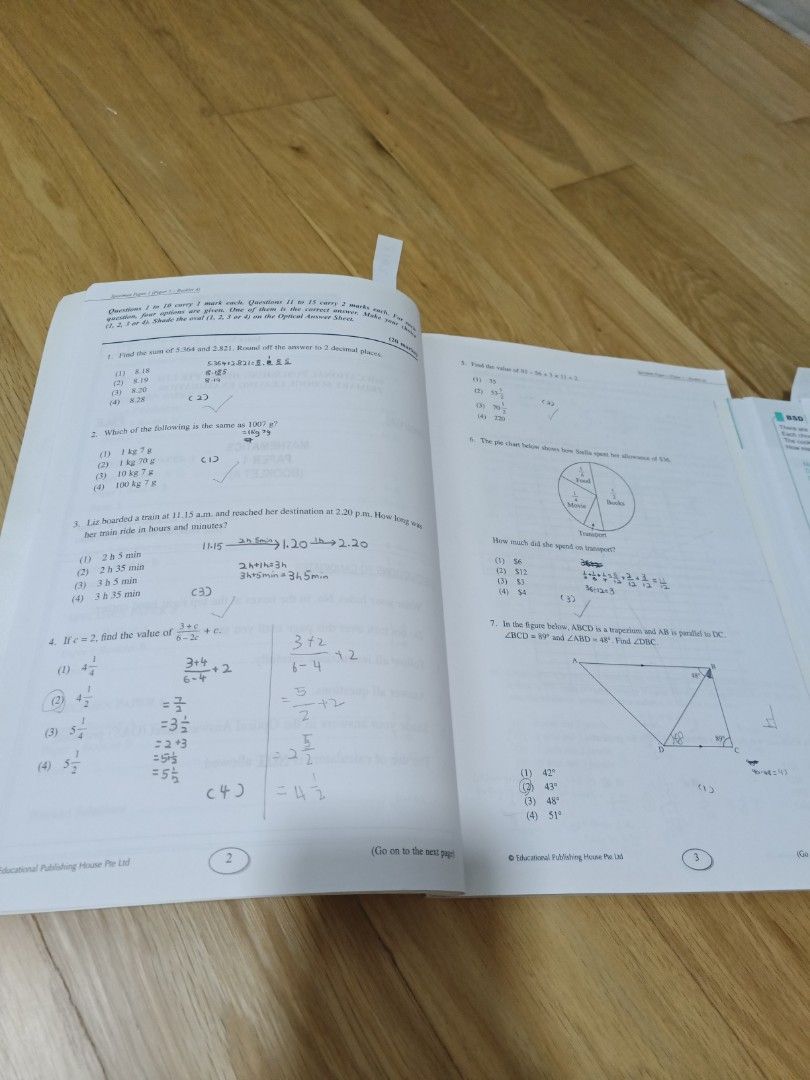 Specimen Paper 1 (Paper 1 – Booklet A)
Questions 1 to 10 carry 1 mark each. Questions 11 to 15 carry 2 marks each. For each
question, four options are given. One of them is the correct answer. Make your choice
(1, 2, 3 or 4). Shade the oval (1, 2, 3 or 4) on the Optical Answer Sheet.
(20 marks)
1. Find the sum of 5.364 and 2.821. Round off the answer to 2 decimal places.
(1) 8.18
(2) 8.19
(3) 8.20
(4) 8.28
8.185
8.19
(2)
2. Which of the following is the same as 1007 g?
= 1kg 7g
(1) 1 kg 7 g
(2) 1 kg 70 g
(3) 10 kg 7 g
(4) 100 kg 7 g
(1)
3. Liz boarded a train at 11.15 a.m. and reached her destination at 2.20 p.m. How long was
her train ride in hours and minutes?
11.15 2h 5min → 1.20 1h → 2.20
(1) 2 h 5 min
(2) 2 h 35 min
(3) 3 h 5 min
(4) 3 h 35 min
2h+1h=3h
3h+5min=3h5min
(3)
4. If c = 2, find the value of 3+c/6-2c + c.
(1) 4 1/4
(2) 4 1/2
(3) 5 1/4
(4) 5 1/2
3+4/6-4 + 2
= 7/2
= 3 1/2
= 2+3
= 5 1/2
= 5 1/2
(4)
3+2/6-4 + 2
= 5/2 + 2
= 2 5/2
= 4 1/2
Educational Publishing House Pte Ltd
2
(Go on to the next page)
5. Find the value of
(1) 35
(2) 55 1/2
(3) 70 1/2
(4) 220
6. The pie chart below shows how Stella spent her allowance of $36.
1/6 Food
1/4 Movie
1/2 Books
Transport
How much did she spend on transport?
(1) $6
(2) $12
(3) $3
(4) $4
36÷12=3
(3)
7. In the figure below, ABCD is a trapezium and AB is parallel to DC.
∠BCD = 89° and ∠ABD = 48°. Find ∠DBC.
A
B
48°
D
89°
C
(1) 42°
(2) 43°
(3) 48°
(4) 51°
(1)
© Educational Publishing House Pte Ltd
3
(Go